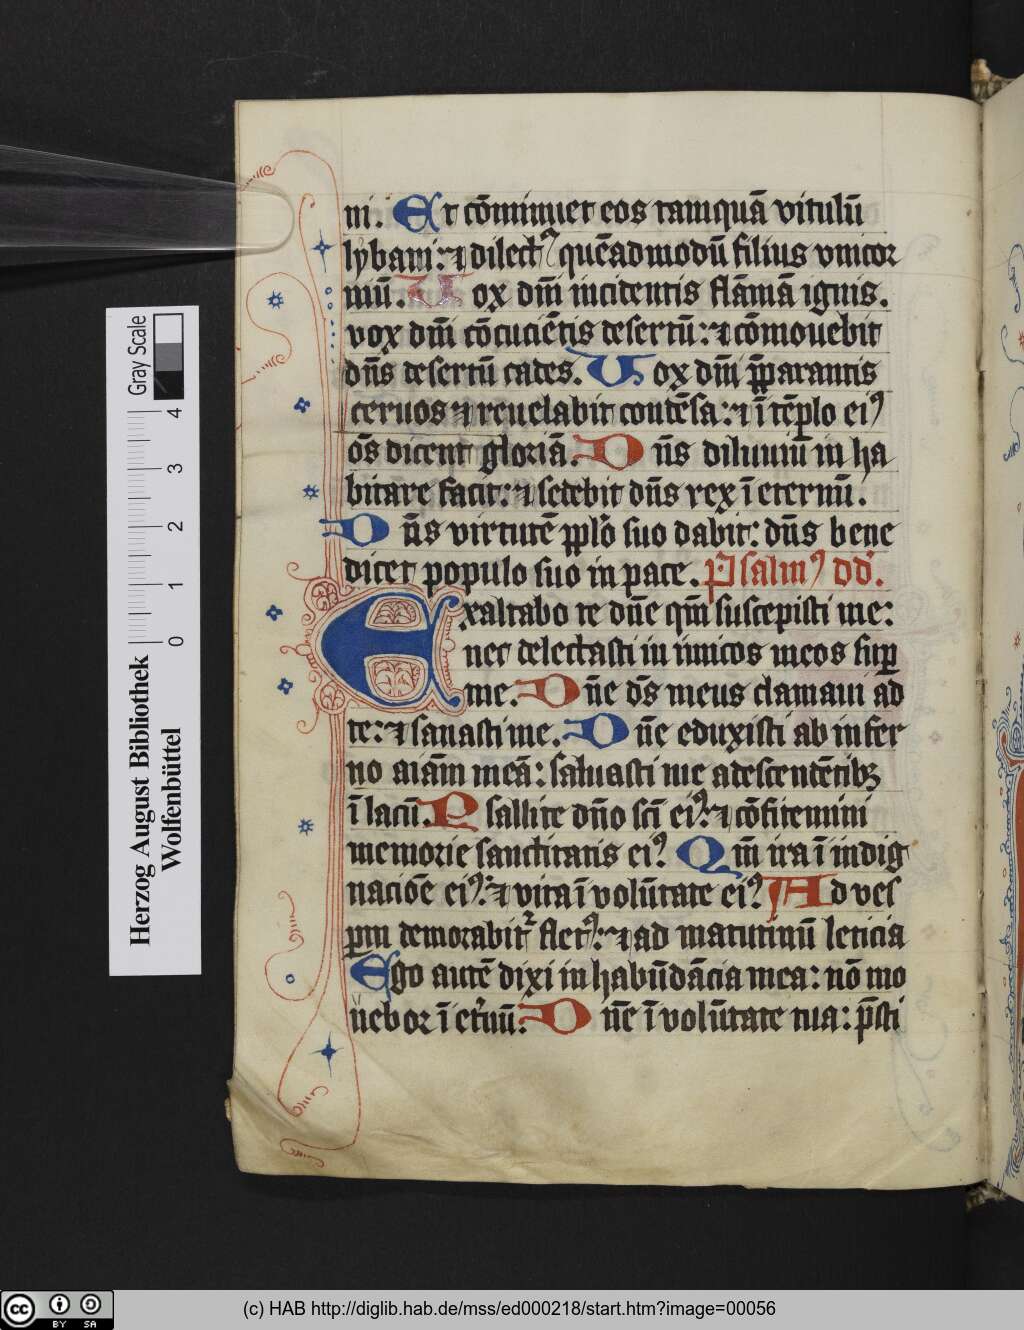 ni. Et cōminuet eos tamquā vitulū
lybani: ⁊ dilectꝰ quēadmodū filius vnicor
niū. Uox dn̄i incidentis flāmā ignis.
vox dn̄i cōcuciētis desertū: ⁊ cōmouebit
dn̄s desertū cades. Uox dn̄i p̄parantis
ceruos ⁊ reuelabit condēsa: ⁊ ī tēplo eiꝰ
om̄s dicent gloriā. Dn̄s diluuiū in ha
bitare facit: ⁊ sedebit dn̄s rex ī eternū.
Dn̄s virtutē pp̄lo suo dabit: dn̄s bene
dicet populo suo in pace. Psalmꝰ dd̄.
Exaltabo te dn̄e qm̄ suscepisti me:
nec delectasti inimicos meos suꝑ
me. Dn̄e ds̄ meus clamaui ad
te: ⁊ sanasti me. Dn̄e eduxisti ab infer
no aīam meā: saluasti me a descendētibꝫ
ī lacū. Psallite dn̄o sc̄i eiꝰ: ⁊ cōfitemini
memorie sanctitatis eiꝰ. Qm̄ ira ī indig
nacioe eiꝰ: ⁊ vita ī volūtate eiꝰ. Ad ves
ꝑm demorabit̄ fletꝰ: ⁊ ad matutinū leticia
Ego autē dixi in habūdācia mea: nō mo
uebor ī et̄nū. Dn̄e ī volūtate tua: p̄sti
Gray Scale
4 3 2 1 0
Herzog August Bibliothek
Wolfenbüttel
cc BY SA
(c) HAB http://diglib.hab.de/mss/ed000218/start.htm?image=00056